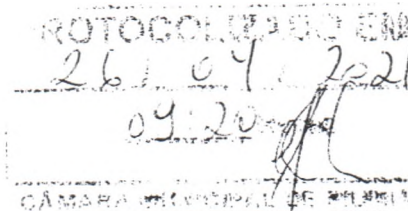 PROTOCOLIZADO EM
26 / 04 / 2021
09:20
CÂMARA MUNICIPAL DE